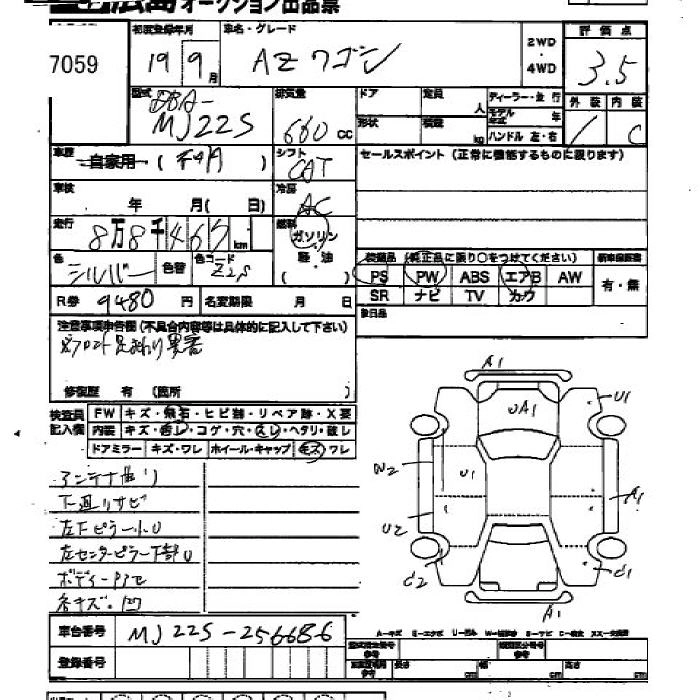 広島 オークション出品票
7059
初度登録年月
19 9 月
車名・グレード
AZワゴン
2WD
・
4WD
評価点
3.5
型式
DBA-
MJ22S
排気量
660 cc
ドア
定員
人
ディーラー・並行
モデル年式
年
外装 内装
C
形状
積載
kg
ハンドル 左・右
車歴
自家用 (
)
シフト
CAT
セールスポイント (正常に機能するものに限ります)
車検
年 月( 日)
冷房
AC
走行
8万8千467 km
燃料
ガソリン
軽・油
色
シルバー
色替
色コード
Z2S
装備品 (純正品に限り○をつけてください)
新車保証書
PS PW ABS エアB AW
SR ナビ TV カワ
有・無
R券 9480 円
名変期限 月 日
後日品
注意事項申告欄 (不具合内容等は具体的に記入して下さい)
フロント足まわり異音
修復歴 有 (箇所 )
検査員
記入欄
FW キズ・飛石・ヒビ割・リペア跡・X要
内装 キズ・汚レ・コゲ・穴・スレ・ヘタリ・破レ
ドアミラー キズ・ワレ ホイール・キャップ キズ ワレ
アンテナ曲り
下廻りサビ
左Fピラー小U
左センターピラー下部U
ボディー
小キズ・凹
車台番号
MJ22S-256686
登録番号
A1
UA1
U1
W2
U1
A1
U2
C2
C1
A1
A-キズ E-エクボ U-凹み W-補修跡 S-サビ C-腐食 XX-交換済
型式指定番号
参考
類別区分番号
参考
長さ cm
幅 cm
高さ cm